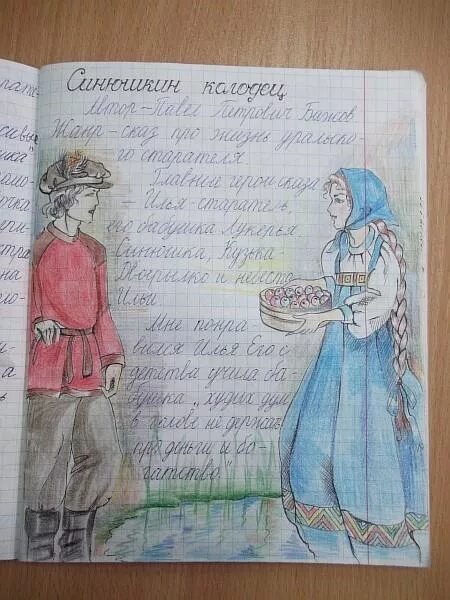 Синюшкин колодец
Автор - Павел Петрович Бажов
Жанр - сказ про жизнь уральско-
го старателя
Главные герои сказа
- Илья-старатель,
его бабушка Лукерья
Синюшка, Кузька
Двоерылко и невеста
Ильи
Мне понра-
вился Илья Его с
детства учила ба-
бушка „худых дум
в голове не держать
про деньги и бо-
гатство."